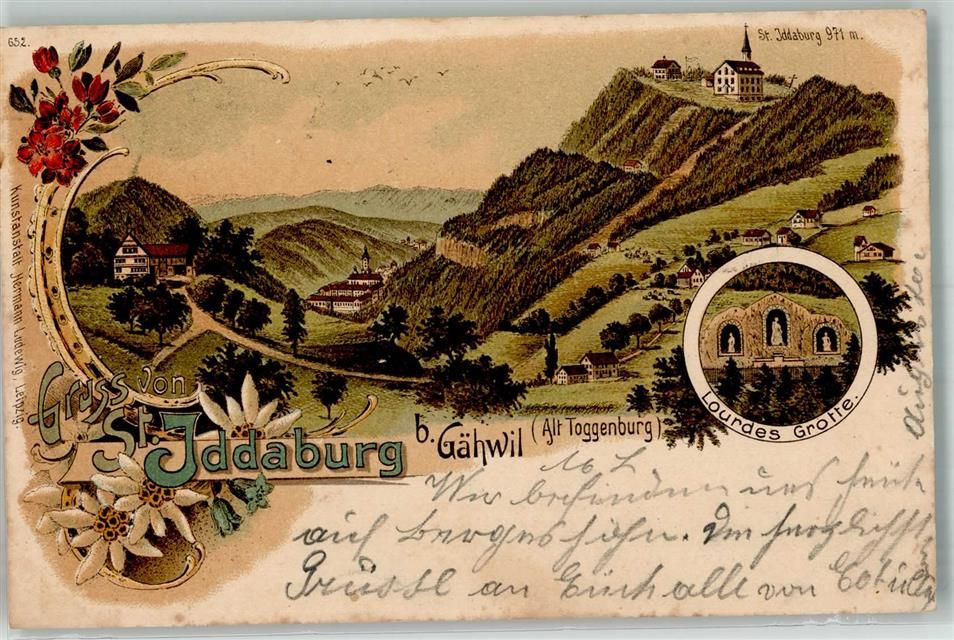 652.
St. Iddaburg 971 m.
Kunstanstalt Hermann Ludewig, Leipzig
Gruss von
St. Iddaburg
b. Gähwil (Alt Toggenburg)
Lourdes Grotte.
Wir befinden uns heute
auf Bergeshöhn. Die herzlichsten
Grüsse an Euch alle von